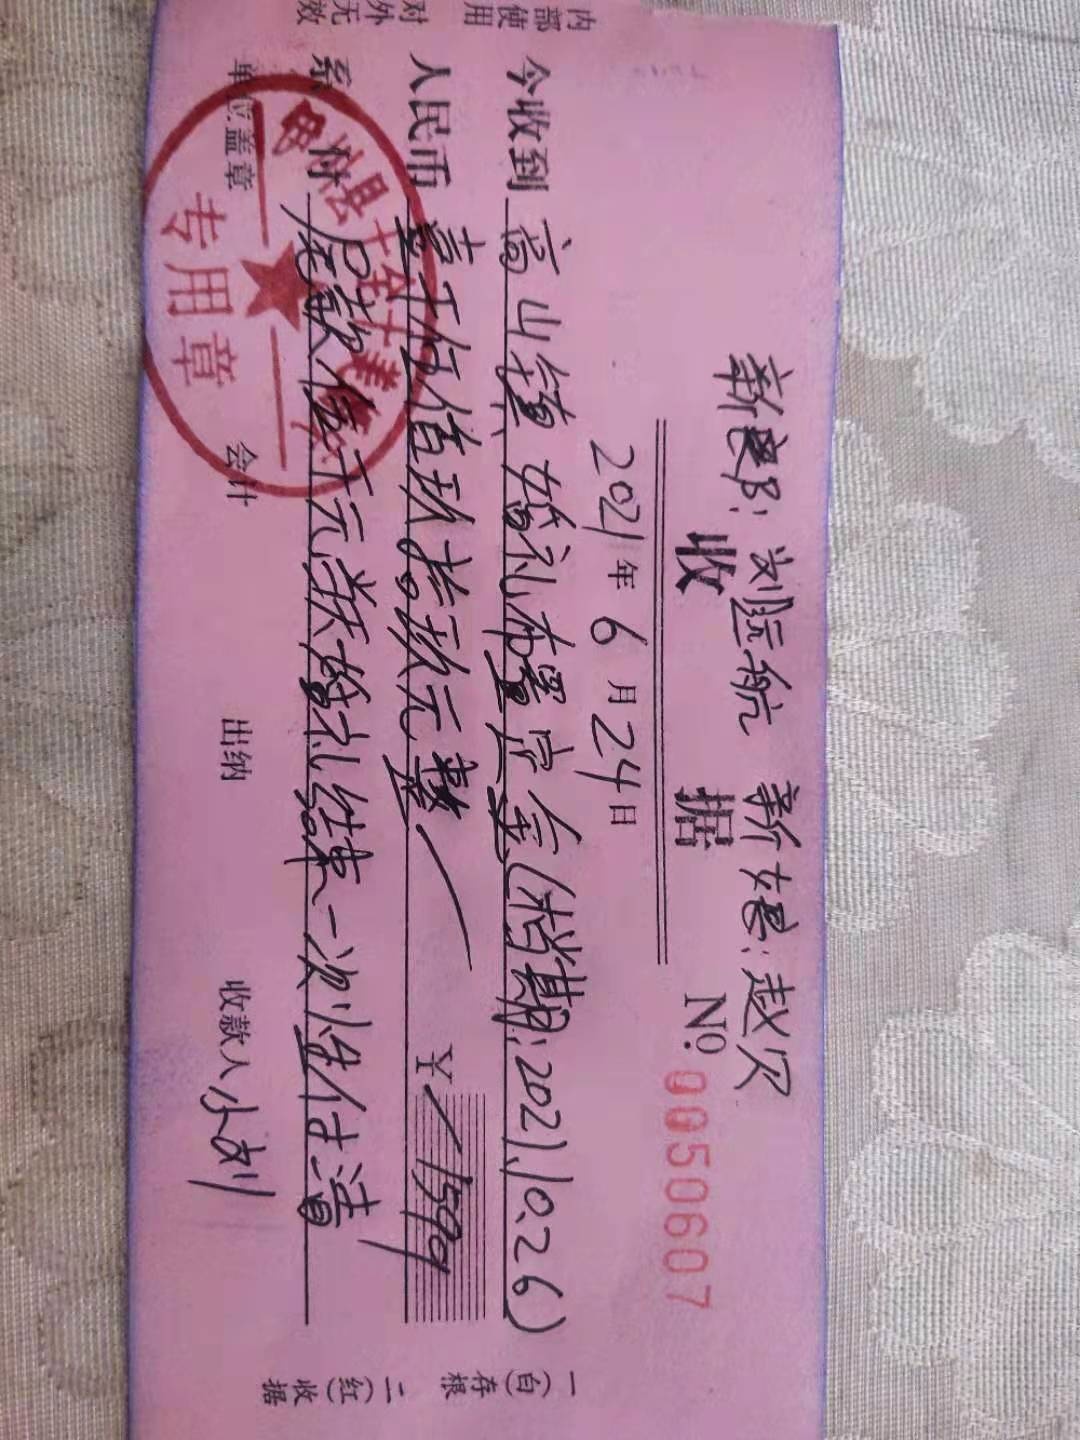 新郎：刘远航 新娘：赵欠
收 据 №. 0050607
2021年6月24日
今收到 高山镇 婚礼布置定金(档期:2021.10.26)
人民币 壹千伍佰玖拾玖元整 ¥1599
系付 尾款伍千元 婚礼结束一次性付清
单位盖章 会计 出纳 收款人 小刘
内部使用
对外无效
一(白)存根 二(红)收据
专用章